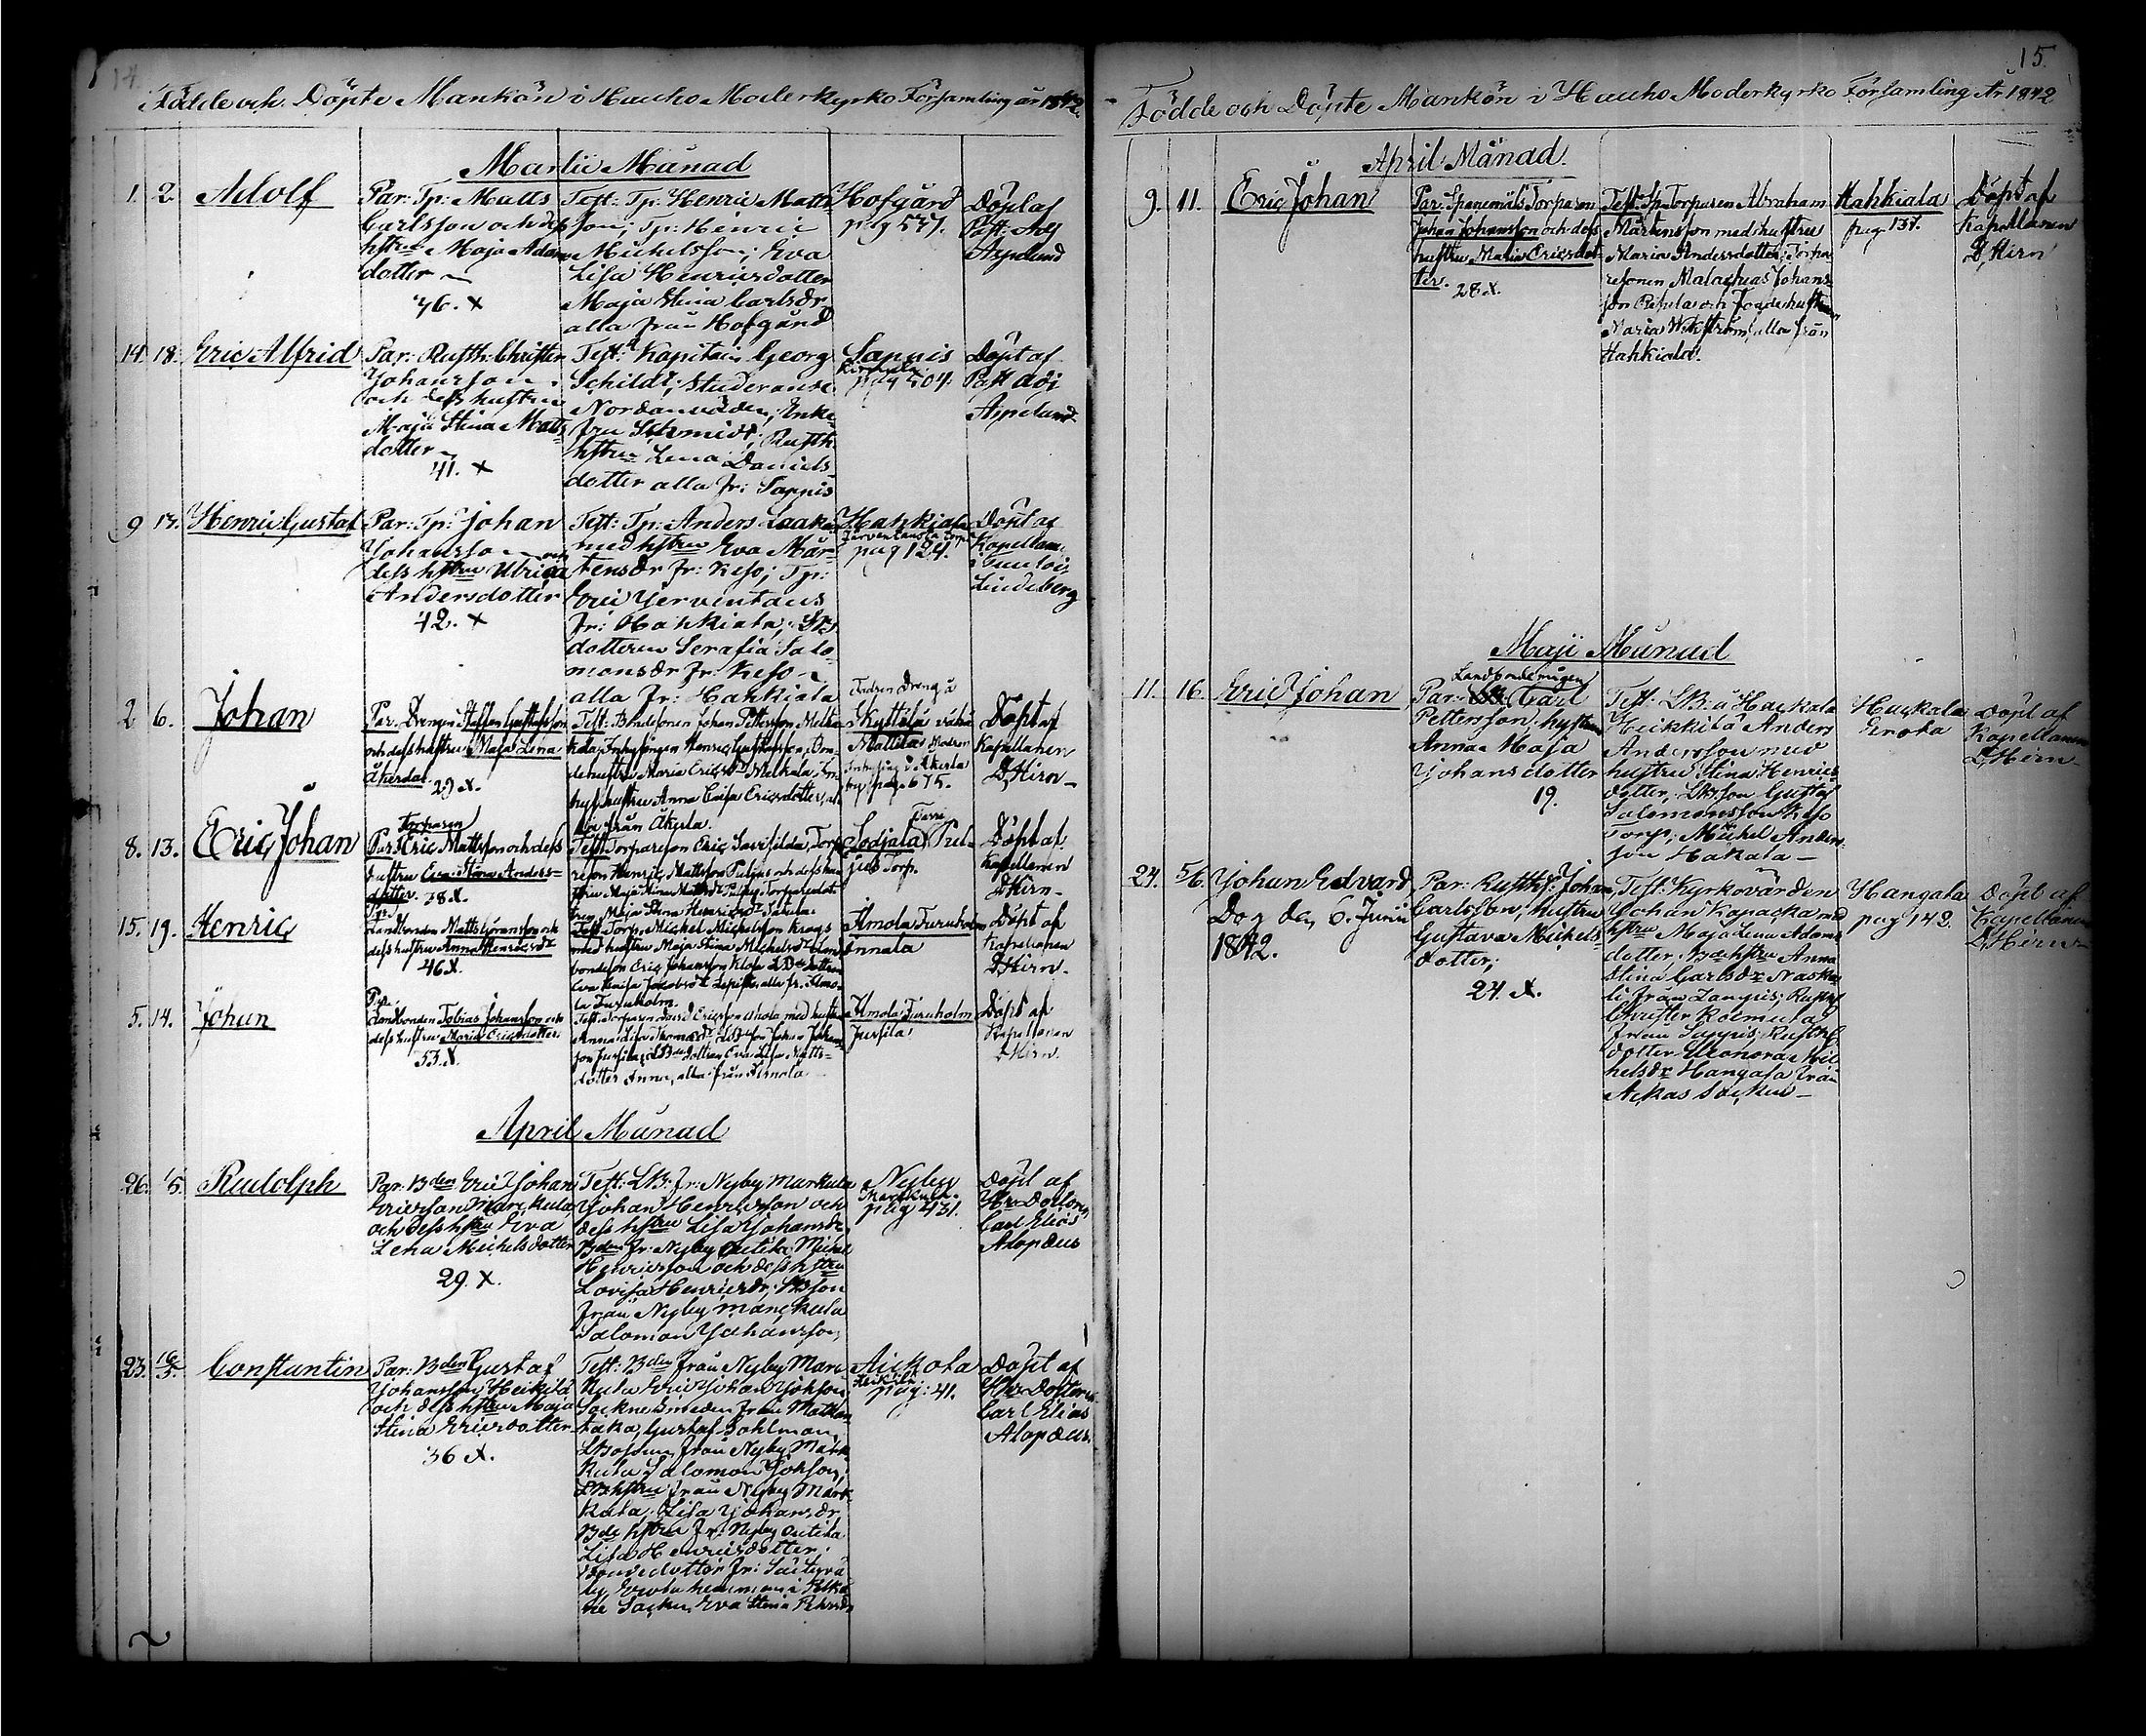 14.
Födde och Döpte Mankön i Hauho Moderkyrko Församling år 1842.
Martii Månad
1. 2 Adolf
Par: Tp: Matts
Carlsson och dess
hstru Maja Adams
dotter
46. X
Test: Tp: Henric Matts
son; Tp: Henric
Michelsson; Eva
Lisa Henricsdotter
Maja Stina Carlsdr
alla från Hofgård
Hofgård
pag 577.
Döpt af
Past: Adj
Aspelund
14. 18. Eric Alfrid
Par: Rusth: Christer
Johansson
och dess hustru
Maja Stina Matts
dotter
41. X
Test: Kapitain Georg
Schildt; Studerande
Nordenswärden; Enke
fru Schmidt; Rusth:
hstru Lena Daniels
dotter alla fr: Sappis
Sappis
pag 504.
Döpt af
Past adj
Aspelund
9 14. Henric Gustaf
Par: Tp: Johan
Johansson och
dess hstru Ulrica
Andersdotter
42. X
Test: Tp: Anders Laaka
med hstru Eva Mår-
tensdr fr: Keso; Tp:
Eric Jerventaus
fr: Hahkiala; LB
dotteren Serafia Salo
monsdr fr: Keso
alla fr: Hahkiala
Hahkiala
pag 124.
Döpt af
Kapellan
i Tuulois
Lindeberg
2 6. Johan
Par. Drengen Staffan Gustafsson
och dess hustru Maja Lena
Åkerdal.
29 X.
Test: Bondsonen Johan Pettersson
Henric Gustafsson,
hustru Maria Ericsdr
hustru Anna Caisa Ericsdotter, al-
la från Åkerla.
Skyttälä
Mattila
pag. 675.
Döpt af
Kapellanen
D. Hirn
8. 13. Eric Johan
Torparen
Par: Eric Mattsson och dess
hustru Eva Stina Anders-
dotter. 38 X.
Test: Torpareson Eric
Henric Mattsson Puljus och dess hu
stru Maja Stina
Maja Stina Henricsdr
Sodjala Pul-
jus Torp.
Döpt af
Kapellanen
D. Hirn
15. 19. Henric
Landbonden Matts Göransson och
dess hustru Anna Henricsdr
46 X.
Test: Torp. Michel Michelsson Krags
med hustru Maja Stina Michelsdr Land
bondeson Eric Johansson
Eva Caisa Jacobsdr alla fr. Almo-
la Furuholm.
Almola Furuholm
Annala
Döpt af
Kapellanen
D. Hirn
5. 14. Johan
Par:
Landbonden Tobias Johansson och
dess hustru Maria Ericsdotter.
33 X.
Test: Torparen David Ericsson Ahola med hustru
Anna Lisa Thomasdr Johan Johans-
son Jussila; Eva Lisa Matts-
dotter Anna, alla från Almola
Almola Furuholm
Jussila
Döpt af
Kapellanen
D. Hirn.
April Månad
26. 1/5. Rudolph
Par: Bden Eric Johan
Ericsson Marckula
och dess hstru Eva
Lena Michelsdotter
29. X.
Test: LB: fr: Nyby Markula
Johan Henricsson och
dess hstru Lisa Johansdr
Bden fr: Nyby Outila Michel
Henricsson och dess hstru
Lovisa Henricsdr; LBson
från Nyby Marckula
Salomon Johansson,
Nyby
Markula
pag 431.
Döpt af
Hr Doctorn
Carl Elias
Alopæus
23. 16/5. Constantin
Par: Bden Gustaf
Johansson Heikilä
och dess hstru Maja
Stina Ericsdotter
36 X.
Test: Bden från Nyby Mar-
kula Eric Johan Johsson
Sockne Smeden från
Gustaf Dahlman,
LBosson från Nyby Mark
kula Salomon Johsson,
LBhstru från Nyby Mark-
kula, Lisa Johansdr
Bde hstru fr: Nyby Outila
Lisa Henricsdotter;
Bondedotter fr:
Erola hemman i Pelkä
ne Socken, Eva Stina Pehrsdr
Aickola
Heikilä
pag: 41.
Döpt af
Hr Doctorn
Carl Elias
Alopæus.
15.
Födde och Döpte Mankön i Hauho Moderkyrko Församling År 1842
April Månad
9. 11. Eric Johan
Par: Spanemåls Torparen
Johan Johansson och dess
hustru Maria Ericsdot-
ter.
28 X.
Test: Sp: Torparen Abraham
Mårtensson med hustru
Maria Andersdotter, Torpa
resonen Malachias Johans-
son och hustrun
Maria Wikström, alla från
Hahkiala.
Hahkiala
pag. 137.
Döpt af
Kapellanen
D. Hirn
Maji Månad
11. 16. Eric Johan
Landbondemågen
Par: Carl
Pettersson, hustru
Anna Maja
Johansdotter
19.
Test: LB: å Hackala
Heikkilä Anders
Andersson med
hustru Stina Henrics
dotter; LBsson Gustaf
Salomonsson Keso
Torp; Michel Anders
son Hakala
Hackala
Erola
Döpt af
Kapellanen
D. Hirn
24. 5/6. Johan Edvard
Dog den 6. Junii
1842.
Par: Rusth: Johan
Carlsson, hustru
Gustava Michels-
dotter;
24. X.
Test: Kyrkovärden
Johan Kapacka med
hstru Maja Lena Adams
dotter, Bdehstru Anna
Stina Carlsdr
från Sappis; Rusth:
Christer
från Sappis; Rusth:
dotter Eleonora Mic
helsdr Hangala från
Ackas Socken
Hangala
pag 142.
Döpt af
Kapellanen
D. Hirn